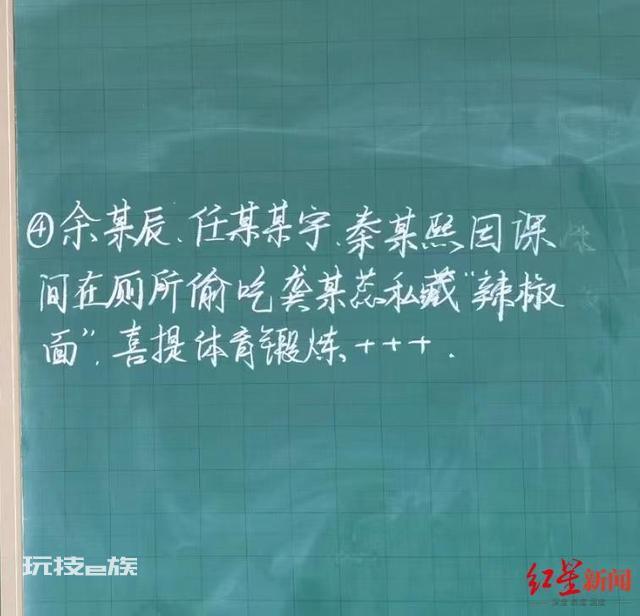 ④余某辰、任某某宇、秦某熙因课
间在厕所偷吃龚某蕊私藏“辣椒
面”，喜提体育锻炼+++.
玩技e族
红星新闻
深度 态度 温度